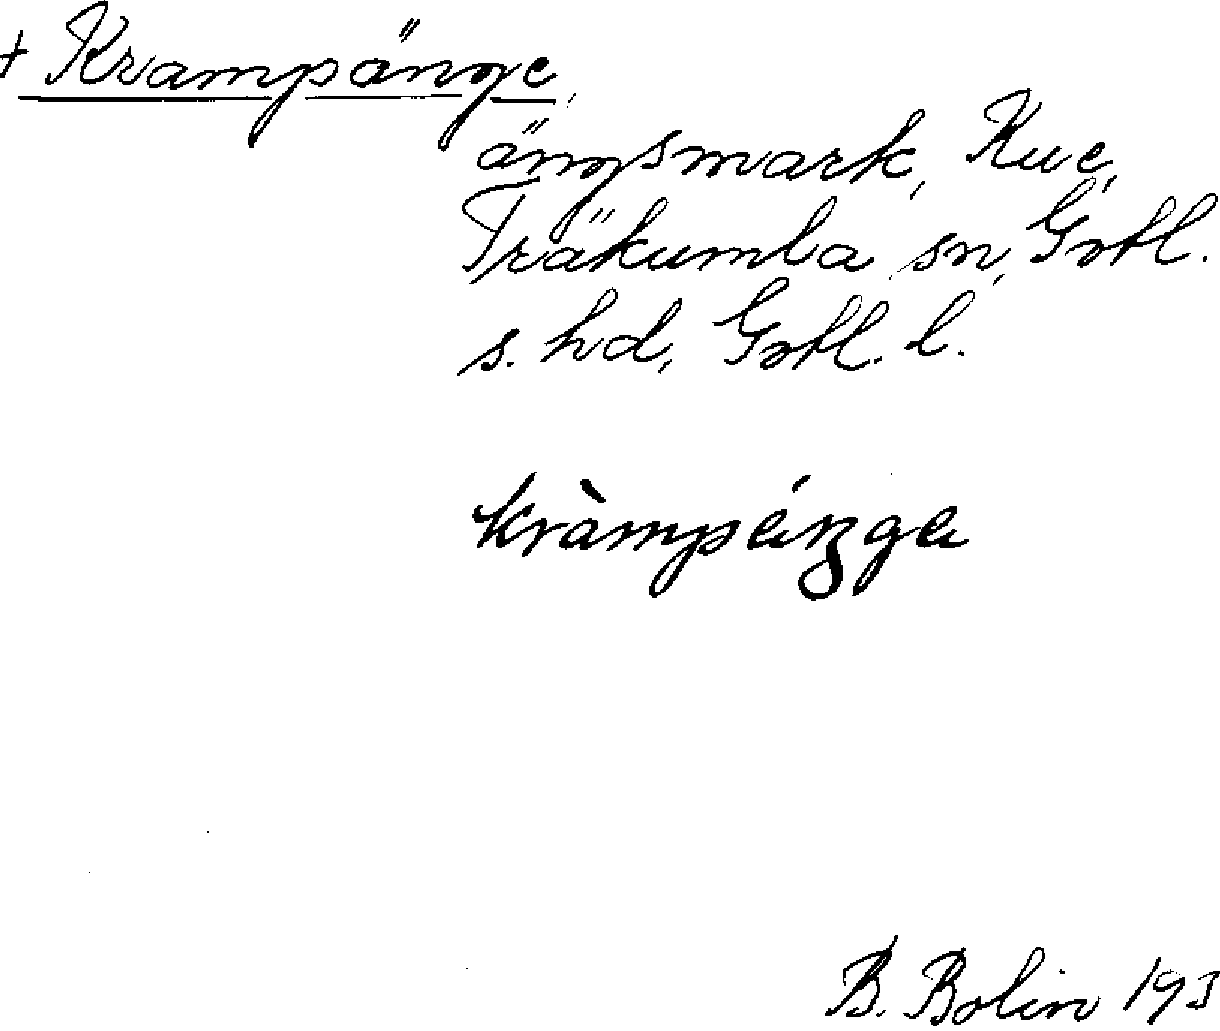 + Krampänge,
ängsmark, Kue,
Träkumla sn, Gotl.
s. hd, Gotl. l.
B. Bolin 193